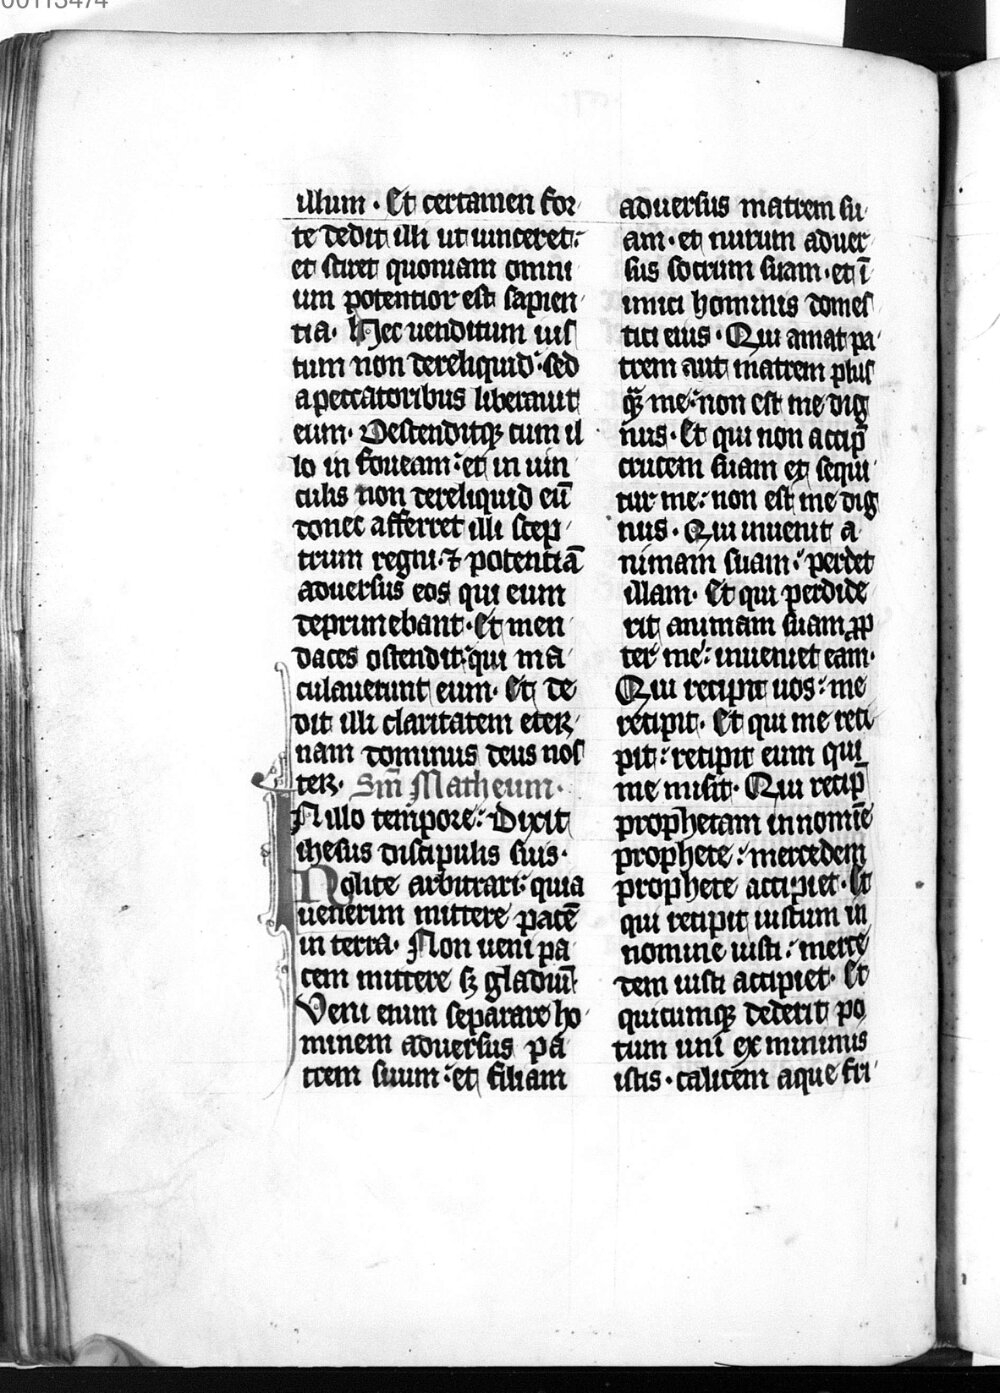 00113474
illum · Et certamen for
te dedit illi ut uinceret:
et sciret quoniam omni
um potentior est sapien
tia · Hec uenditum ius
tum non dereliquid · sed
a peccatoribus liberauit
eum · Descenditqꝫ cum il
lo in foueam : et in uin
culis non dereliquid eū
donec afferret illi scep
trum regni · ⁊ potentiā
aduersus eos qui eum
deprimebant · Et men
daces ostendit : qui ma
culauerunt eum · Et de
dit illi claritatem eter
nam dominus deus nos
ter · Sm̄ Matheum ·
In illo tempore : Dixit
ihesus discipulis suis ·
Nolite arbitrari : quia
uenerim mittere pacē
in terra · Non ueni pa
cem mittere sꝫ gladiū
Veni enim separare ho
minem aduersus pa
trem suum : et filiam
aduersus matrem su
am · et nurum aduer
sus socrum suam · et ī
imici hominis domes
tici eius · Qui amat pa
trem aut matrem plus
qᷓ me : non est me dig
nus · Et qui non accip̄
crucem suam et sequi
tur me : non est me dig
nus · Qui inuenit a
nimam suam : perdet
illam · Et qui perdide
rit animam suam ꝓp
ter me : inueniet eam ·
Qui recipit uos : me
recipit · Et qui me reci
pit : recipit eum qui
me misit · Qui recip̄
prophetam in nomīe
prophete : mercedem
prophete accipiet · Et
qui recipit iustum in
nomine iusti : merce
dem iusti accipiet · Et
quicumqꝫ dederit po
tum uni ex minimis
istis · calicem aque fri